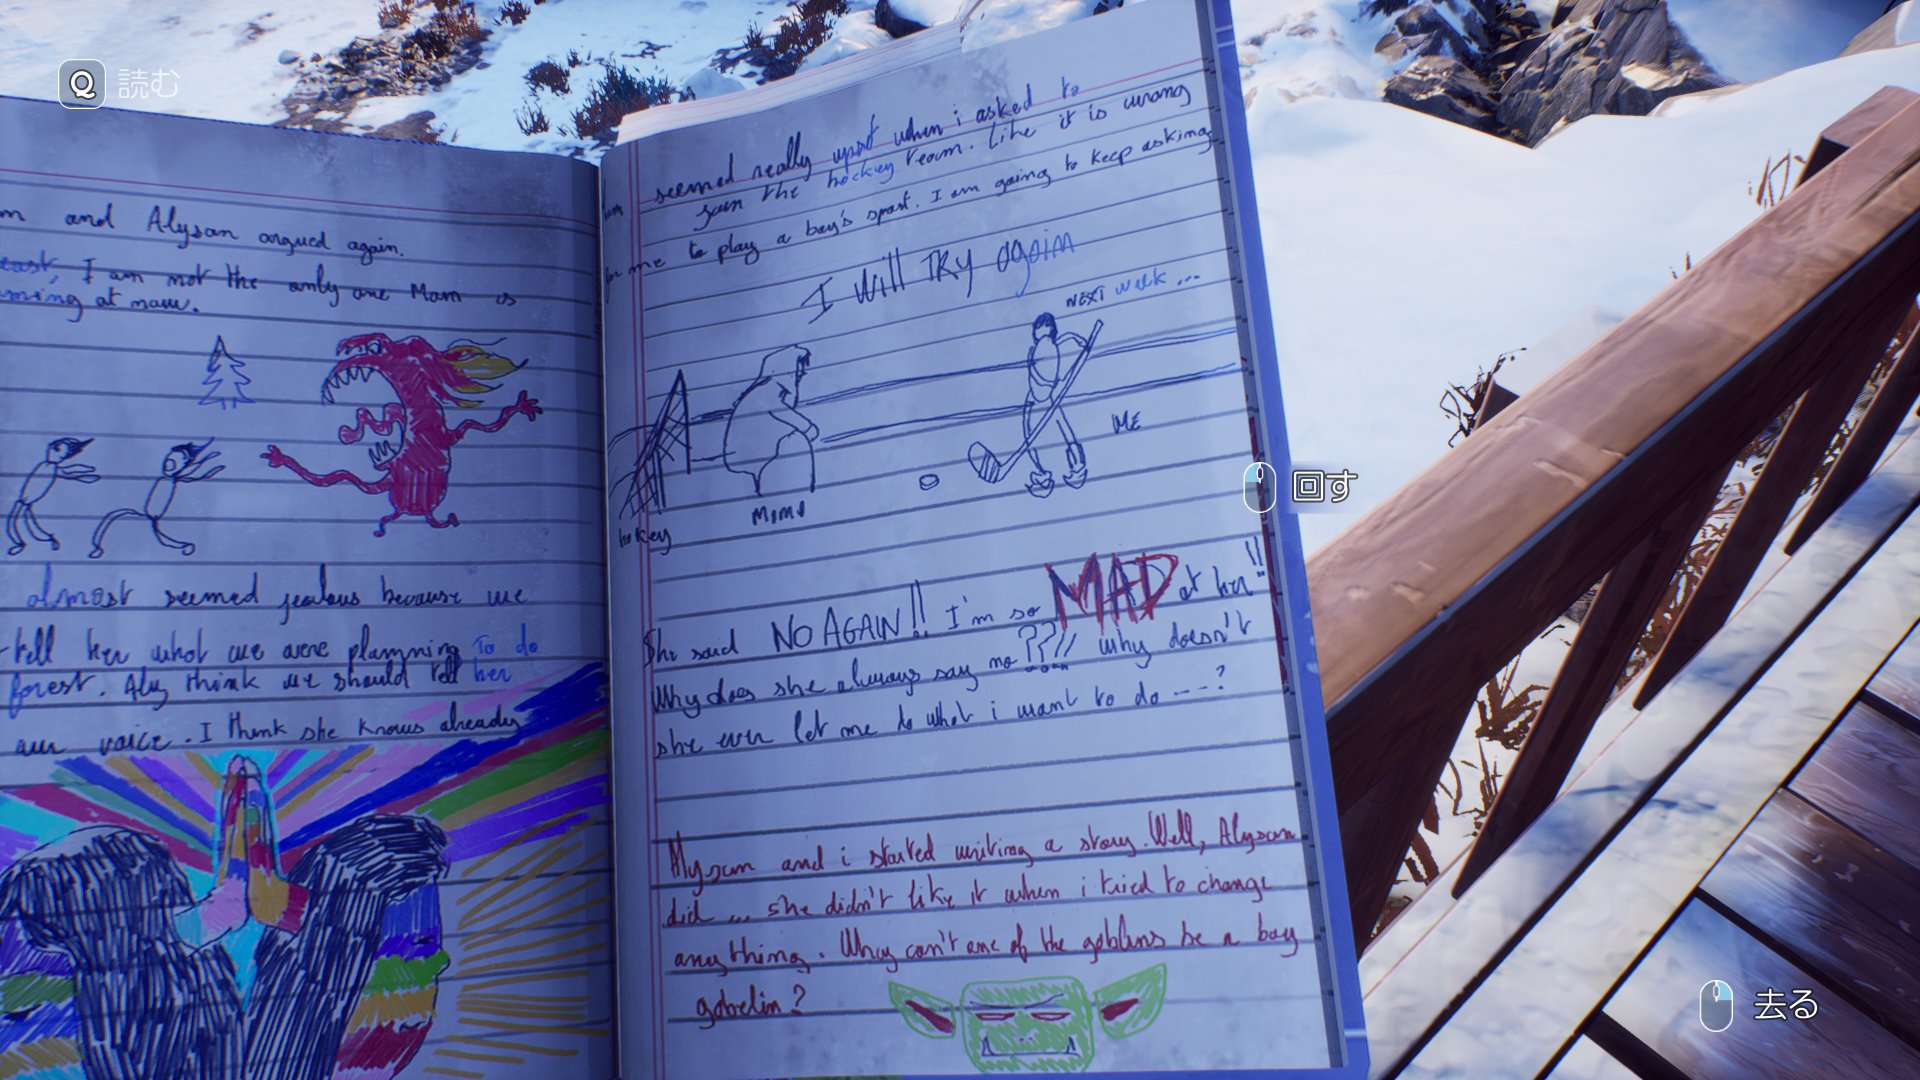 Q 読む
m and Alysan argued again.
east, I am not the only one Mom is
ming at now.
almost seemed jealous because we
tell her what we were planning To do
forest. Aly think we should tell her
our voice. I think she knows already
um seemed really upset when i asked to
join the hockey team. Like it is wrong
for me to play a boy's sport. I am going to keep asking
I will TRY again
NEXT week ...
ME
Mom
hokey
She said NO AGAIN!! I'm so MAD at her!!
Why does she always say no ??!! Why doesn't
she ever let me do what i want to do ---?
Alysan and i started writing a story. Well, Alysan
did ... she didn't like it when i tried to change
anything. Why can't one of the goblins be a boy
gobelin?
回す
去る